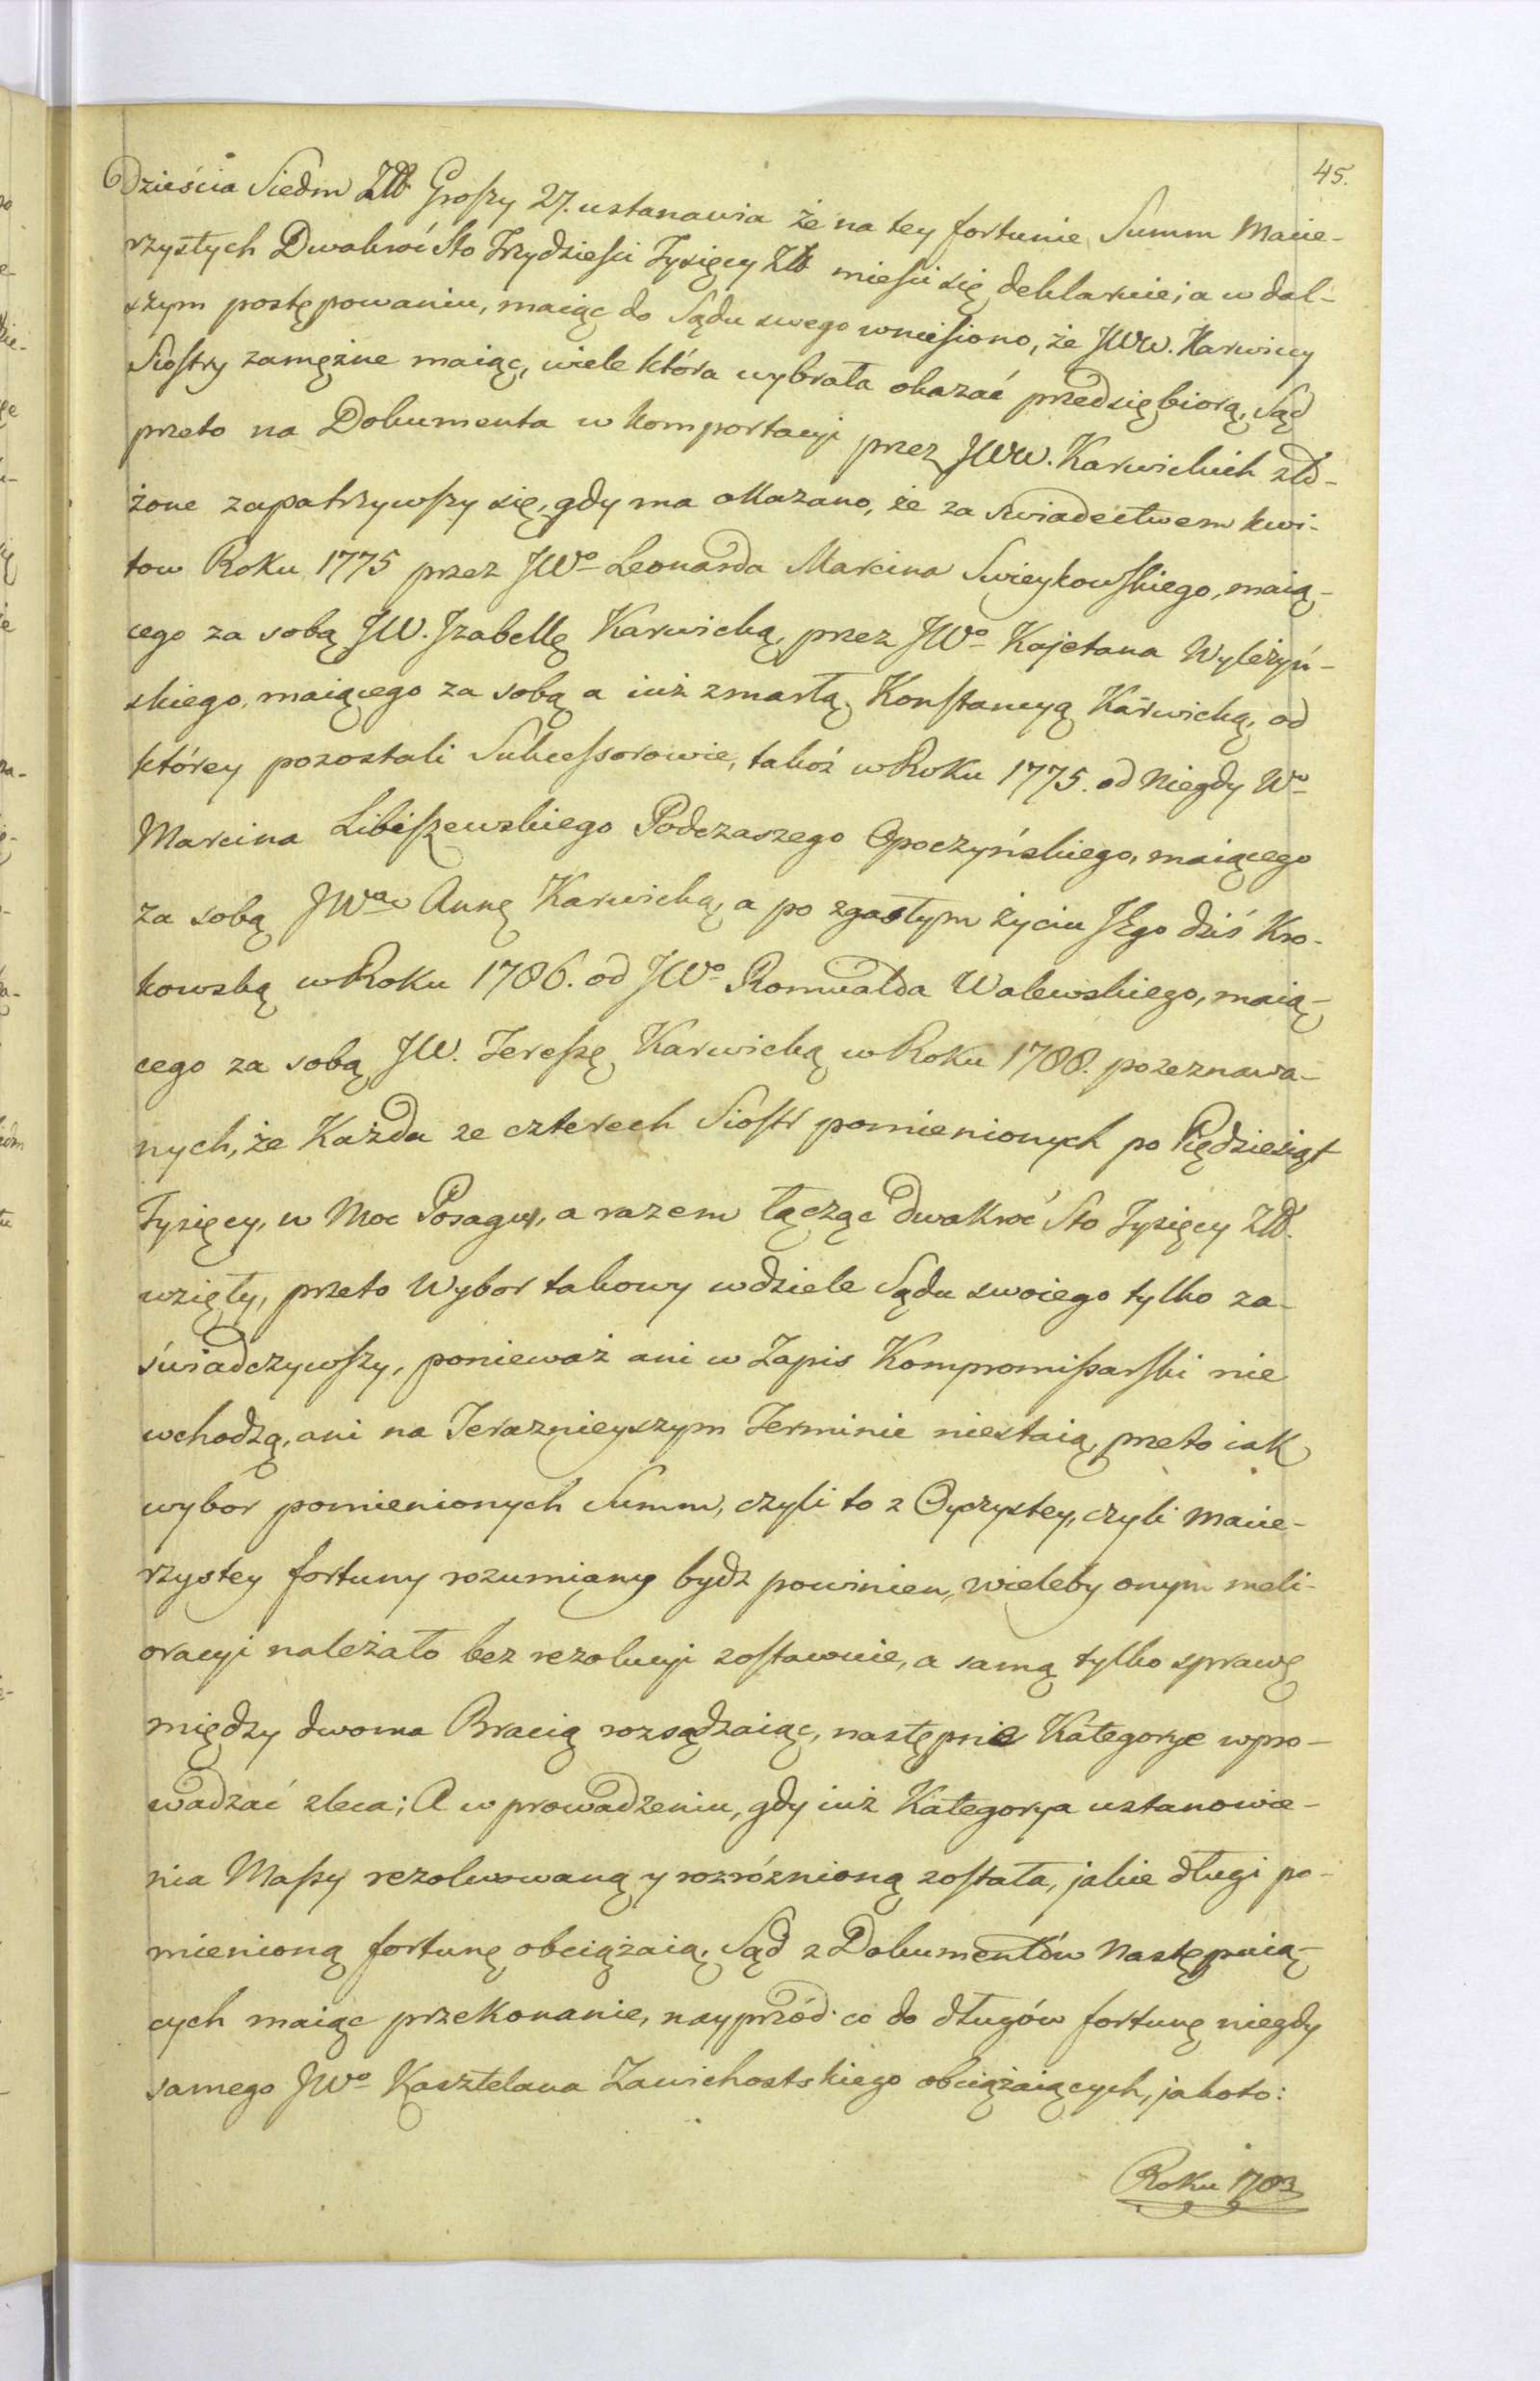 45.
dzieścia Siedm Złł Groszy 27. ustanawia że na tey fortunie Summ Macie-
rzystych Dwakroć Sto Trzydzieści Tysięcy Złł mieści się deklaruie; a w dal-
szym postępowaniu, maiąc do Sądu swego wniesiono, że JWW. Karwiccy
Siostry zamężne maiąc, wiele która wybrała okazać przedsiębiorą, Sąd
przeto na Dokumenta w komportacyi przez JWW. Karwickich zło-
żone zapatrzywszy się, gdy ma okazano, że za swiadectwem kwi-
tow Roku 1775 przez JWo Leonarda Marcina Swieykowskiego, maią-
cego za sobą JW. Izabellę Karwicką, przez JWo Kajetana Wyleżyń-
skiego, maiącego za sobą a iuż zmarłą Konstancyą Karwicką, od
którey pozostali Sukcessorowie, takoż w Roku 1775. od Niegdy Wo
Marcina Libiszewskiego Podczaszego Opoczyńskiego, maiącego
za sobą JWą Annę Karwicką, a po zgasłym życiu JEgo dziś Kro-
kowską w Roku 1786. od JWo Romualda Walewskiego, maią-
cego za sobą JW. Teressę Karwicką w Roku 1788. pozeznawa-
nych, że Każda ze czterech Siostr pomienionych po Pięćdziesiąt
Tysięcy, w Moc Posagu, a razem łącząc dwakroć Sto Tysięcy Złł.
wzięły, przeto Wybor takowy w dziele Sądu swoiego tylko za-
świadczywszy, ponieważ ani w Zapis Kompromissarski nie
wchodzą, ani na Terazniejszym Terminie niestaią, przeto iak
wybor pomienionych Summ, czyli to z Oyczystey, czyli Macie-
rzystey fortuny rozumiany bydz powinien, wieleby onym meli-
oracyi należało bez rezolucyi zostawuie, a samą tylko sprawę
między dwoma Bracią rozsądzaiąc, następnie Kategorye wpro-
wadzać zleca; A w prowadzeniu, gdy iuż Kategorya ustanowie-
nia Massy rezolwowaną y rozróznioną została, jakie długi po-
mienioną fortunę obciążaią, Sąd z Dokumentów Następuią-
cych maiąc przekonanie, nayprzód co do długów fortunę niegdy
samego JWo Kasztelana Zawichostskiego obciążaiących, jakoto:
Roku 1783